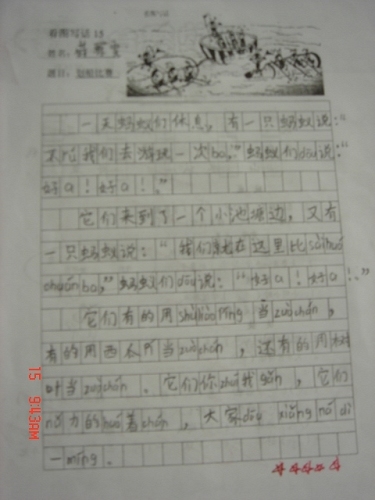 看图写话15
姓名:
题目:划船比赛
一天蚂蚁们休息,有一只蚂蚁说:“
不如我们去游玩一次ba,”蚂蚁们dōu说:“
好a!好a!”
它们来到了一个小池塘边,又有
一只蚂蚁说:“我们就在这里比sài huá
chuán ba,”蚂蚁们dōu说:“好a!好a!”
它们有的用 当zuò chán,
有的用西瓜 当zuò chán,还有的用树
叶当zuò chán。它们你zhuī我gǎn,它们
nǔ力的huá着chán,大家dōu xiǎng ná dì
一míng。
15 9:43AM